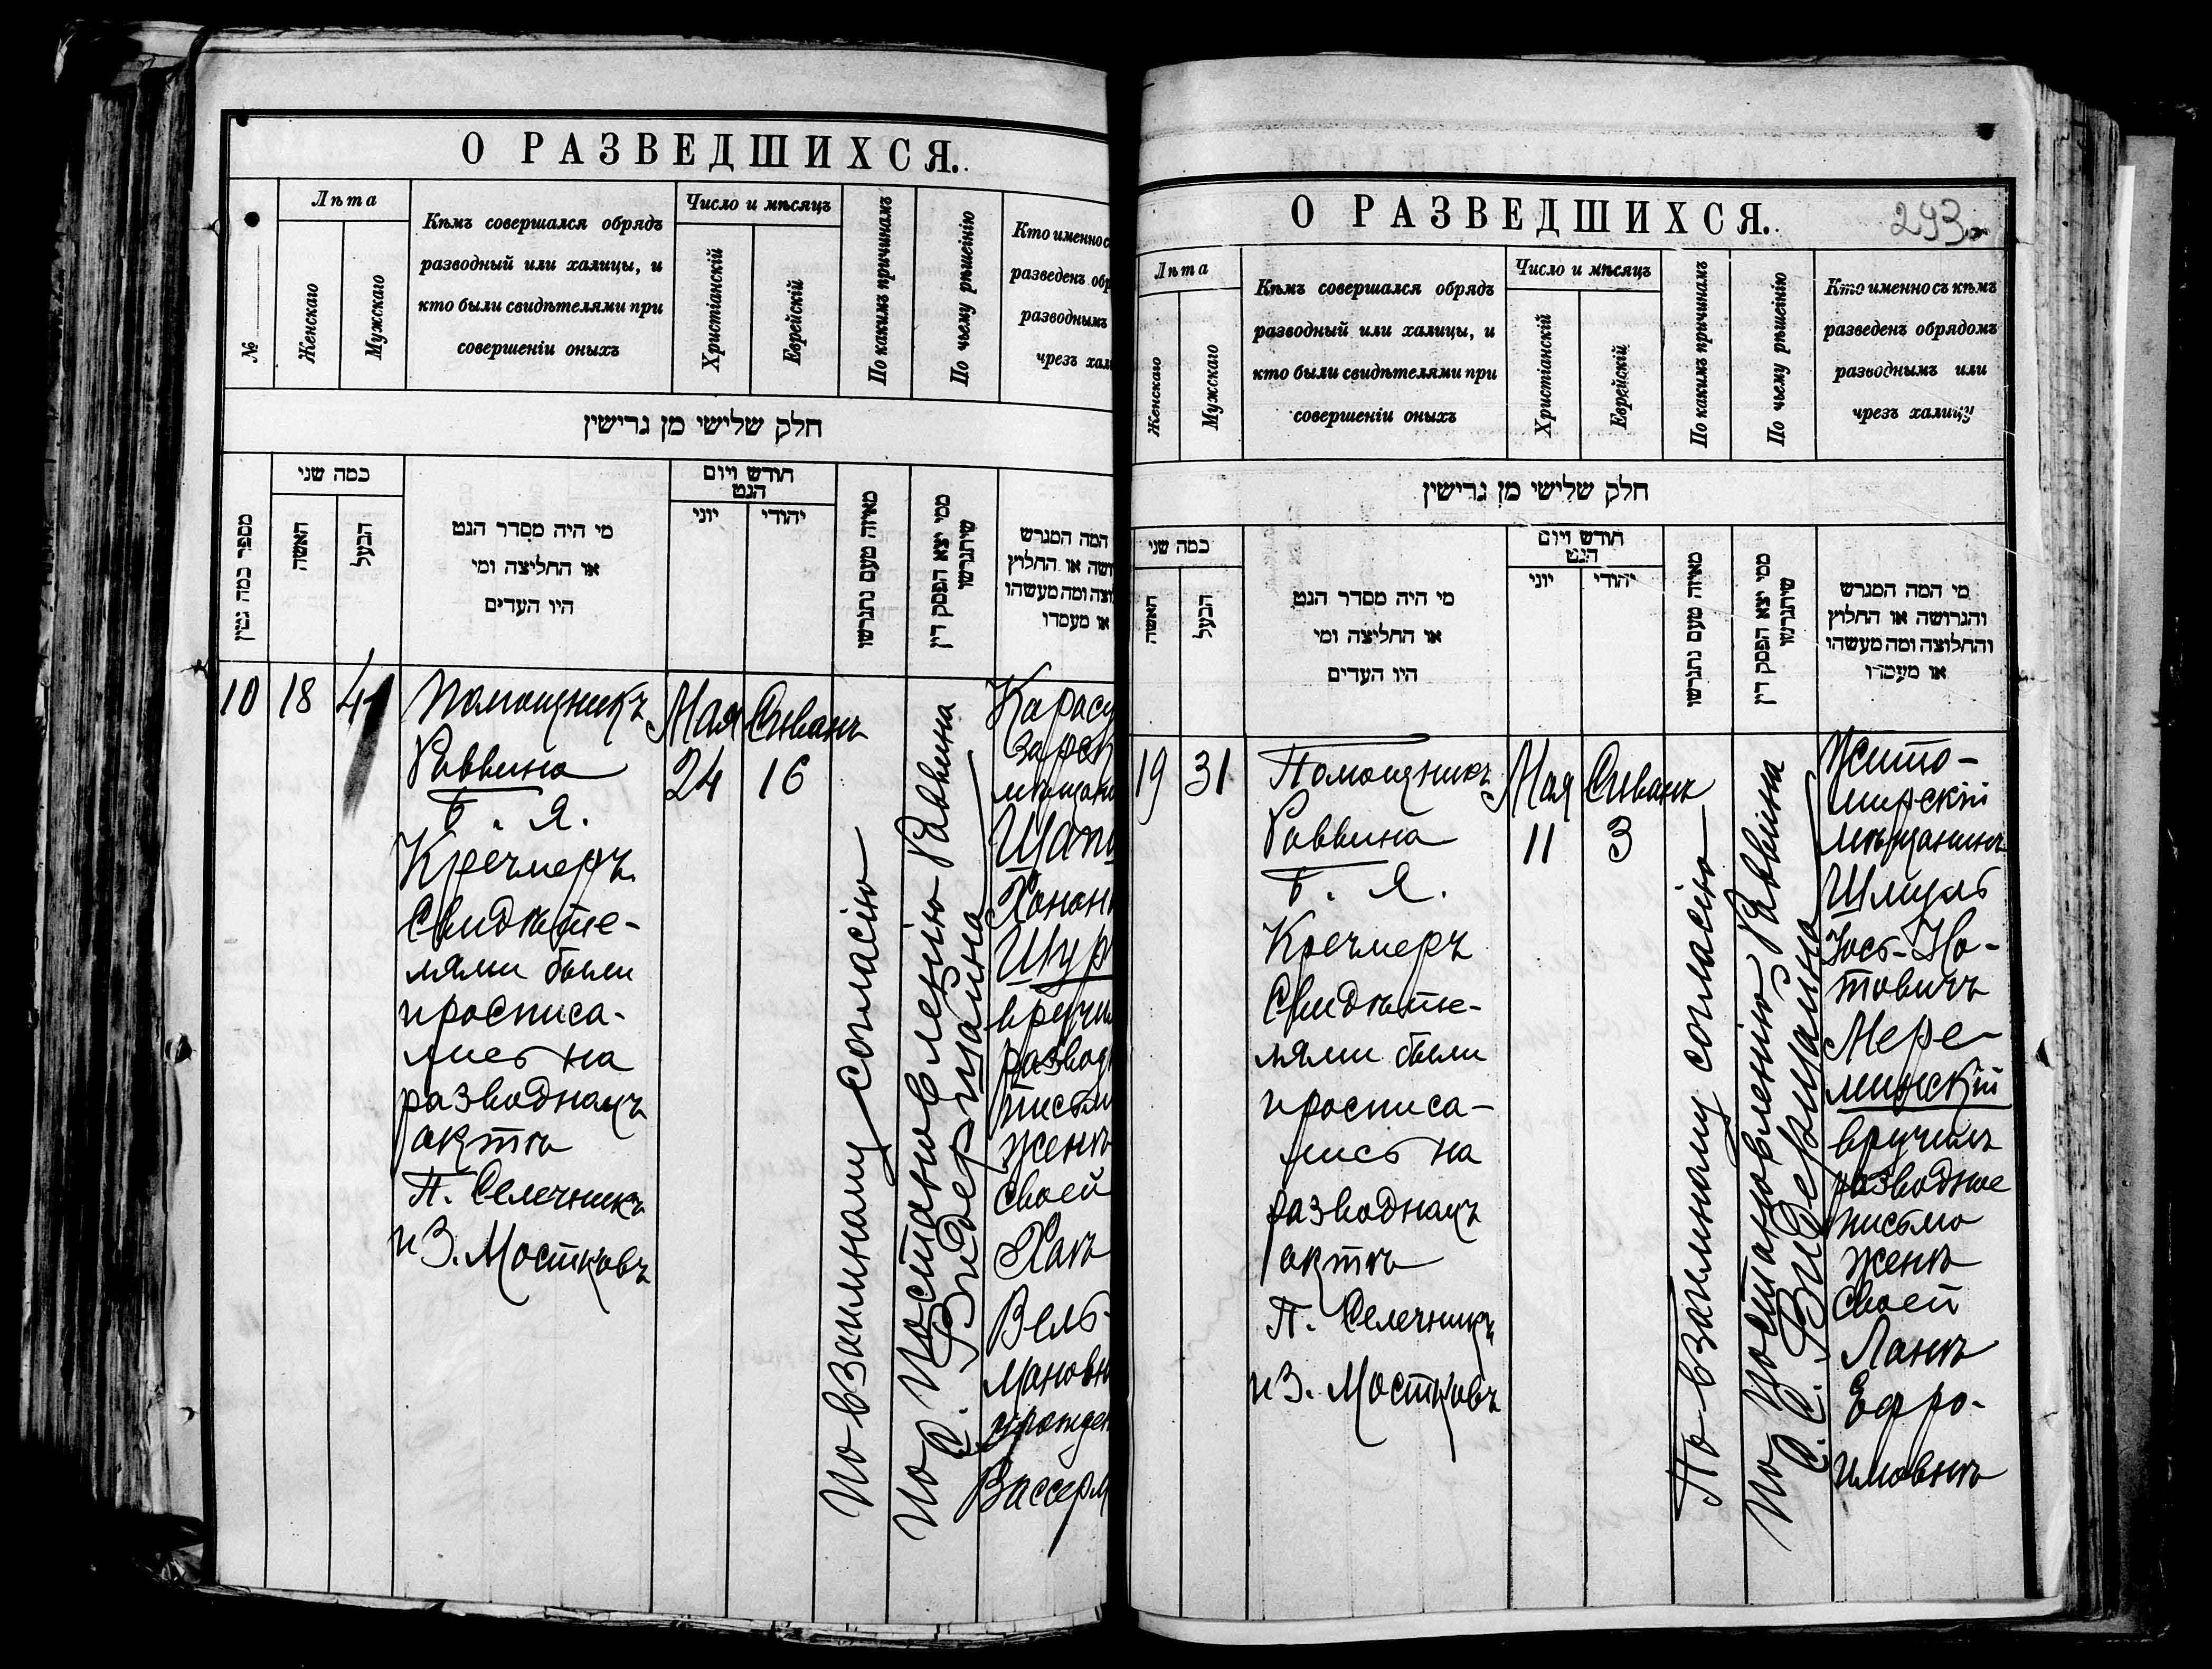 О РАЗВЕДШИХСЯ.
№
Лѣта
Женскаго
Мужскаго
Кѣмъ совершался обрядъ
разводный или халицы, и
кто были свидѣтелями при
совершеніи оныхъ
Число и мѣсяцъ
Христіанскій
Еврейскій
По какимъ причинамъ
По чьему рѣшенію
Кто именно с
разведенъ обр
разводнымъ
чрезъ хал
חלק שלישי מן גרישין
מספר כמה גטין
כמה שני
האשה
הבעל
מי היה מסדר הגט
או החליצה ומי
היו העדים
חודש ויום
הגט
יוני
יהודי
מאיזה טעם נתגרשו
ממי יצא הפסק דין
שיתגרשו
המה המגרש
ושה או החלוץ
וצה ומה מעשהו
או מעמדו
10
18
41
Помощникъ
Раввина
Б. Я.
Кречмеръ
Свидѣте-
лями были
и росписа-
лись на
разводномъ
актѣ
П. Селечникъ
и З. Мостковъ
Мая
24
Сивань
16
По взаимному согласію
По постановленію Раввина
Карасу
мѣщани
Шап
Ханан
Шур
вручил
развод
письм
женѣ
своей
Вель-
мановн
урожден
Вассерм
О РАЗВЕДШИХСЯ.
293
Лѣта
Женскаго
Мужскаго
Кѣмъ совершался обрядъ
разводный или халицы, и
кто были свидѣтелями при
совершеніи оныхъ
Число и мѣсяцъ
Христіанскій
Еврейскій
По какимъ причинамъ
По чьему рѣшенію
Кто именно съ кѣмъ
разведенъ обрядомъ
разводнымъ или
чрезъ халицу
חלק שלישי מן גרישין
כמה שני
האשה
הבעל
מי היה מסדר הגט
או החליצה ומי
היו העדים
חודש ויום
הגט
יוני
יהודי
מאיזה טעם נתגרשו
ממי יצא הפסק דין
שיתגרשו
מי המה המגרש
והגרושה או החלוץ
והחלוצה ומה מעשהו
או מעמדו
19
31
Помощникъ
Раввина
Б. Я.
Кречмеръ
Свидѣте-
лями были
и росписа-
лись на
разводномъ
актѣ
П. Селечникъ
и З. Мостковъ
Мая
11
Сивань
3
По взаимному согласію
По постановленію Раввина
Жито-
мирскій
мѣщанинъ
Шмуль
Іось-Но-
товичъ
Мере-
минскій
вручилъ
разводное
письмо
женѣ
своей
Ханѣ
Ефро-
имовнѣ